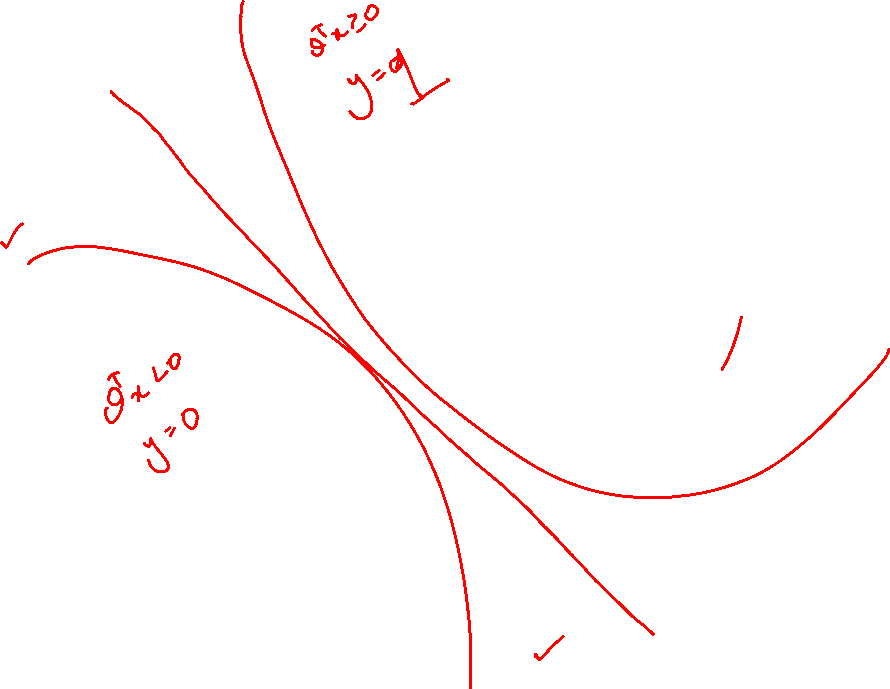 θᵀx≥0
y=1
θᵀx<0
y=0